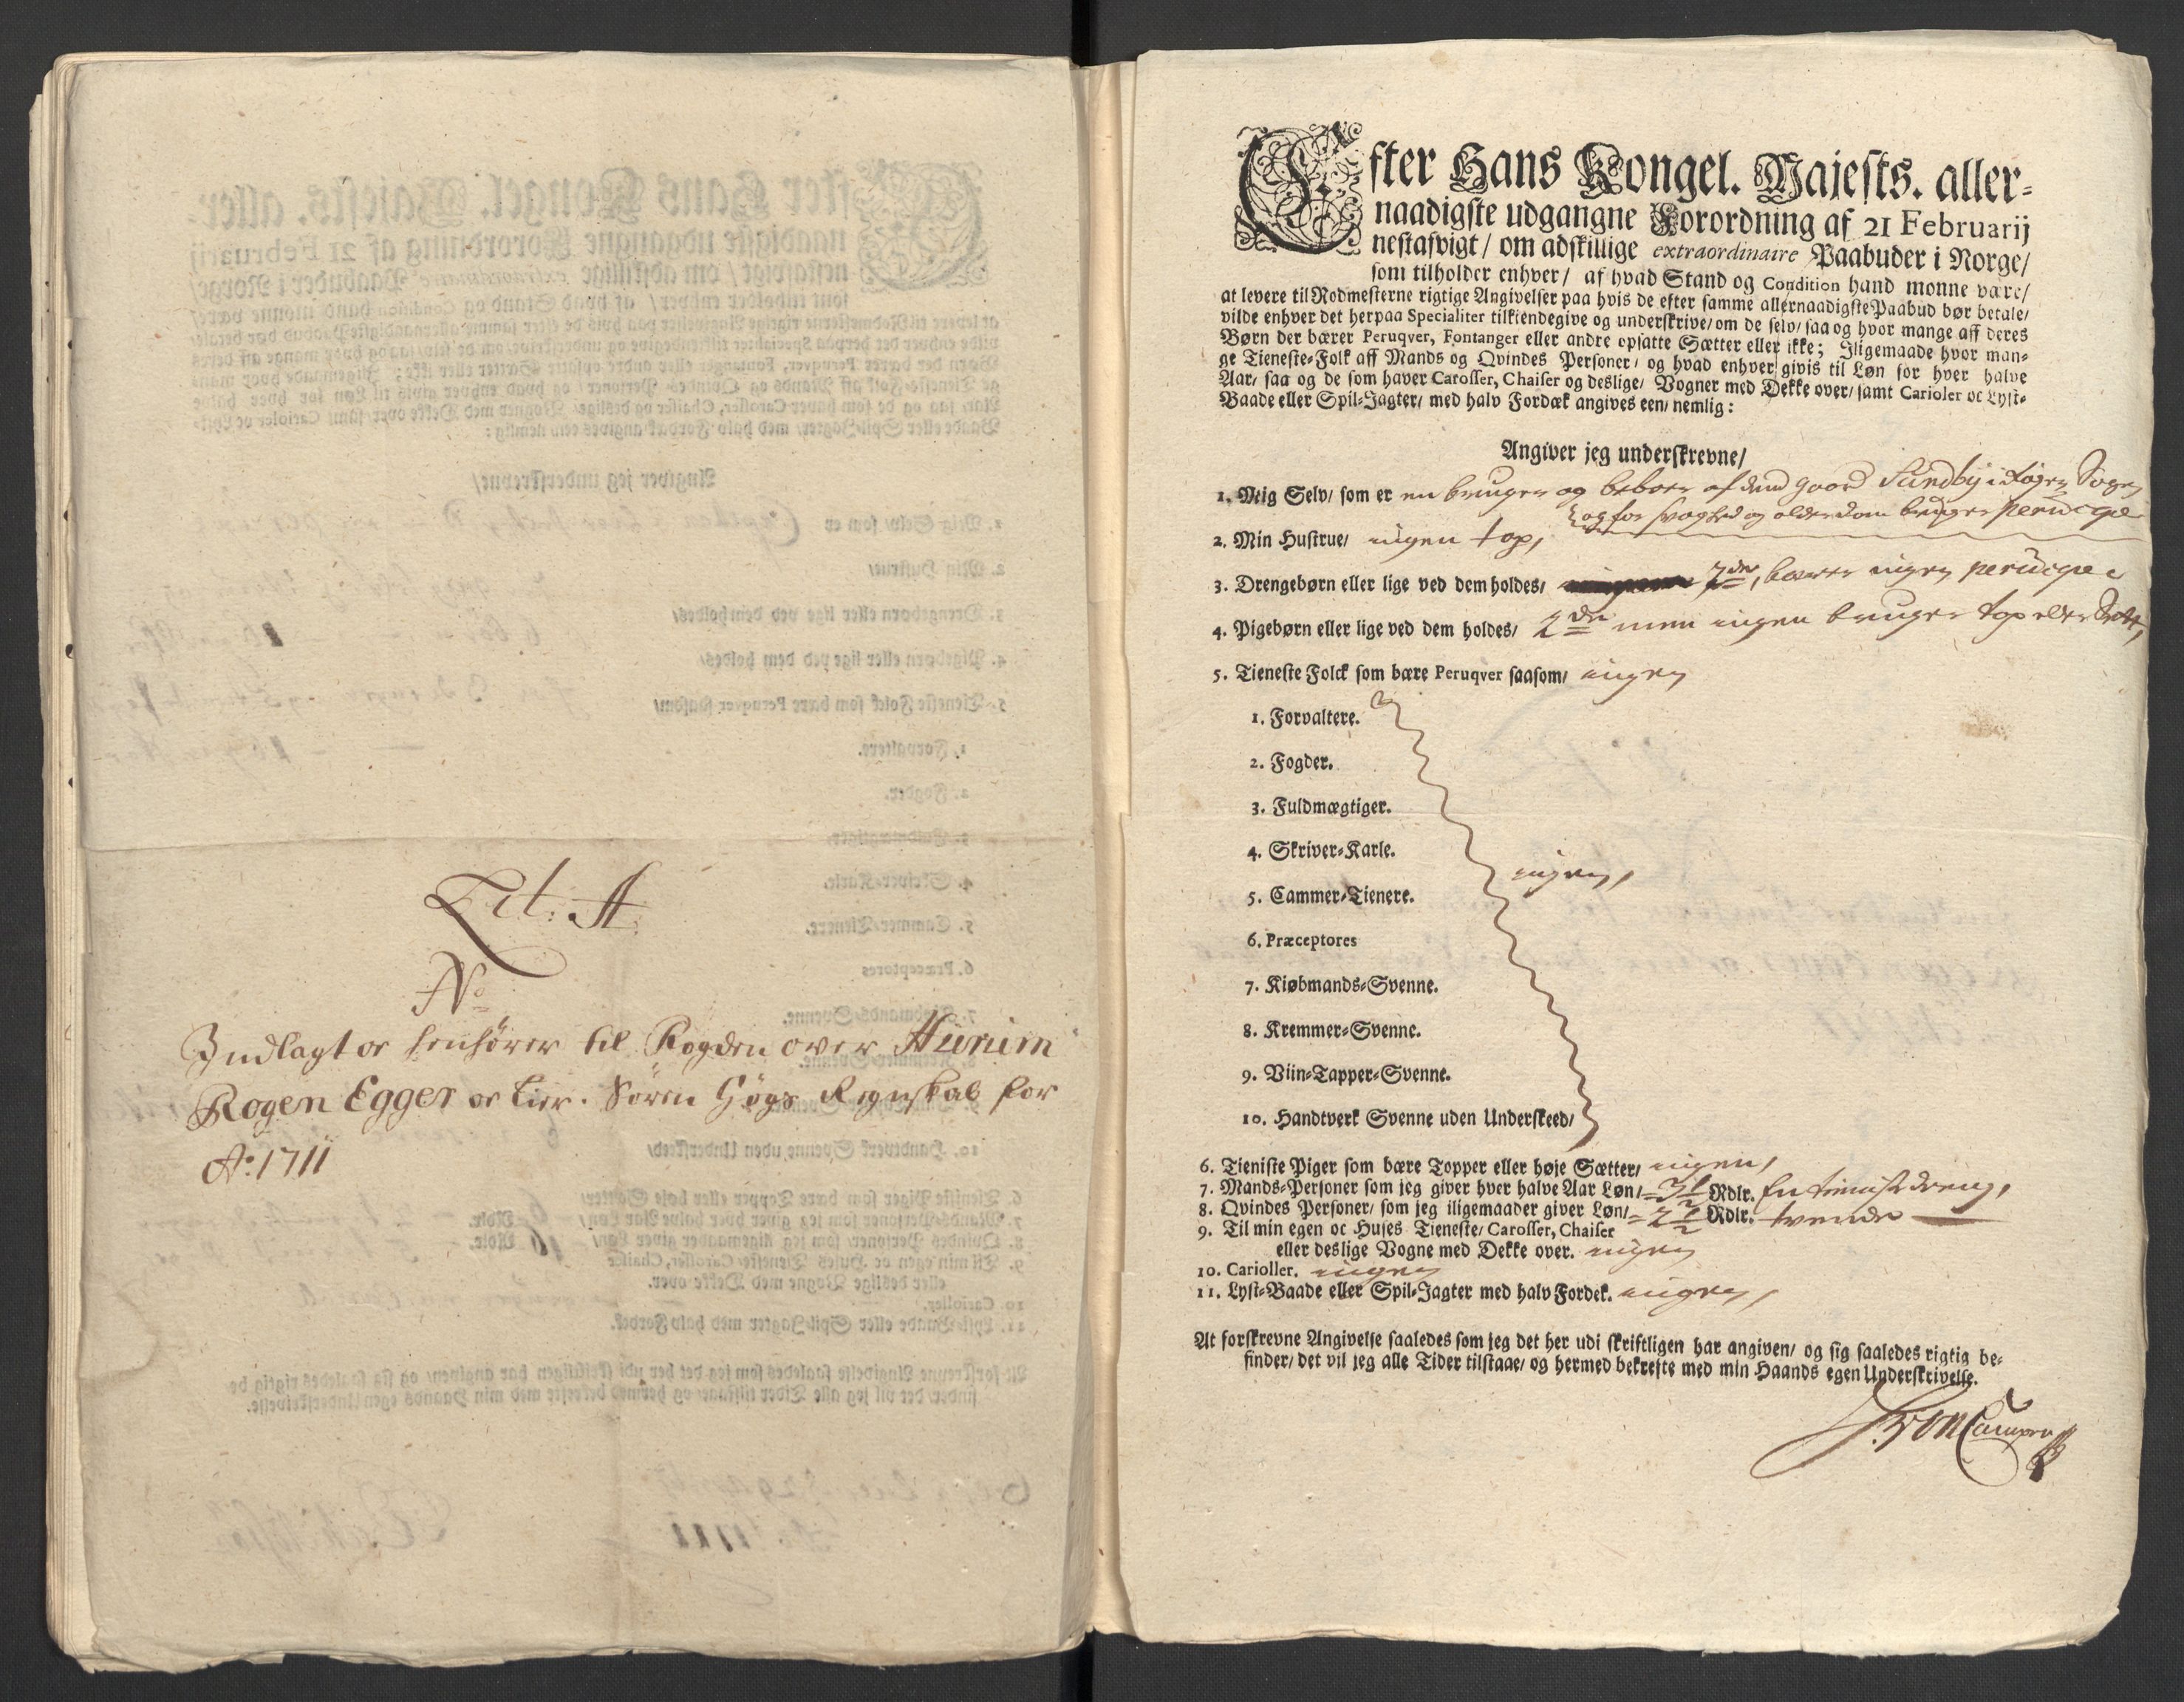 Lit: A
No
Indlagt oc henhörer til Fogden over Hurum
Rogen Egger oc Lier. Sören Högs Regnskab for
Ao: 1711
Efter Hans Kongel. Majests. aller-
naadigste udgangne Forordning af 21 Februarij
nestafvigt / om adskillige extraordinaire Paabuder i Norge /
som tilholder enhver / af hvad Stand og Condition hand monne være /
at levere til Rodmesterne rigtige Angivelser paa hvis de efter samme allernaadigste Paabud bør betale /
vilde enhver det herpaa Specialiter tilkiendegive og underskrive / om de selv / saa og hvor mange aff deres
Børn der bærer Peruqver, Fontanger eller andre opsatte Sætter eller ikke; Iligemaade hvor man-
ge Tieneste-Folk aff Mands og Qvindes Personer / og hvad enhver givis til Løn for hver halve
Aar / saa og de som haver Carosser, Chaiser og deslige / Vogner med Dekke over / samt Carioler oc Lyst-
Baade eller Spil-Jagter / med halv Fordæk angives een / nemlig:
Angiver jeg underskrevne /
1. Mig Selv / som er en bruger og beboer af dend gaard Sundby i Røgen Sogen
og for svaghed og alderdom bruger peruqve
2. Min Hustrue / ingen top,
3. Drengebørn eller lige ved dem holdes / 7de, bærer ingen peruqve
4. Pigebørn eller lige ved dem holdes / 2de men ingen bruger top eller Sett,
5. Tieneste Folck som bære Peruqver saasom / ingen
1. Forvaltere.
2. Fogder.
3. Fuldmægtiger.
4. Skriver-Karle.
ingen,
5. Cammer-Tienere.
6. Præceptores
7. Kiøbmands-Svenne.
8. Kremmer-Svenne.
9. Viin-Tapper-Svenne.
10. Handtverk Svenne uden Underskeed /
6. Tieniste Piger som bære Topper eller høje Sætter / ingen,
7. Mands-Personer som jeg giver hver halve Aar Løn / 3 1/2 Rdlr. En tienistedreng,
8. Qvindes Personer / som jeg iligemaader giver Løn / 2 1/2 Rdlr. tvende
9. Til min egen oc Huses Tieneste / Carosser, Chaiser
eller deslige Vogne med Dekke over. ingen
10. Carioller. ingen
11. Lyst-Baade eller Spil-Jagter med halv Fordek. ingen,
At forskrevne Angivelse saaledes som jeg det her udi skriftligen har angiven / og sig saaledes rigtig be-
finder / det vil jeg alle Tider tilstaae / og hermed bekrefte med min Haands egen Underskrivelse.